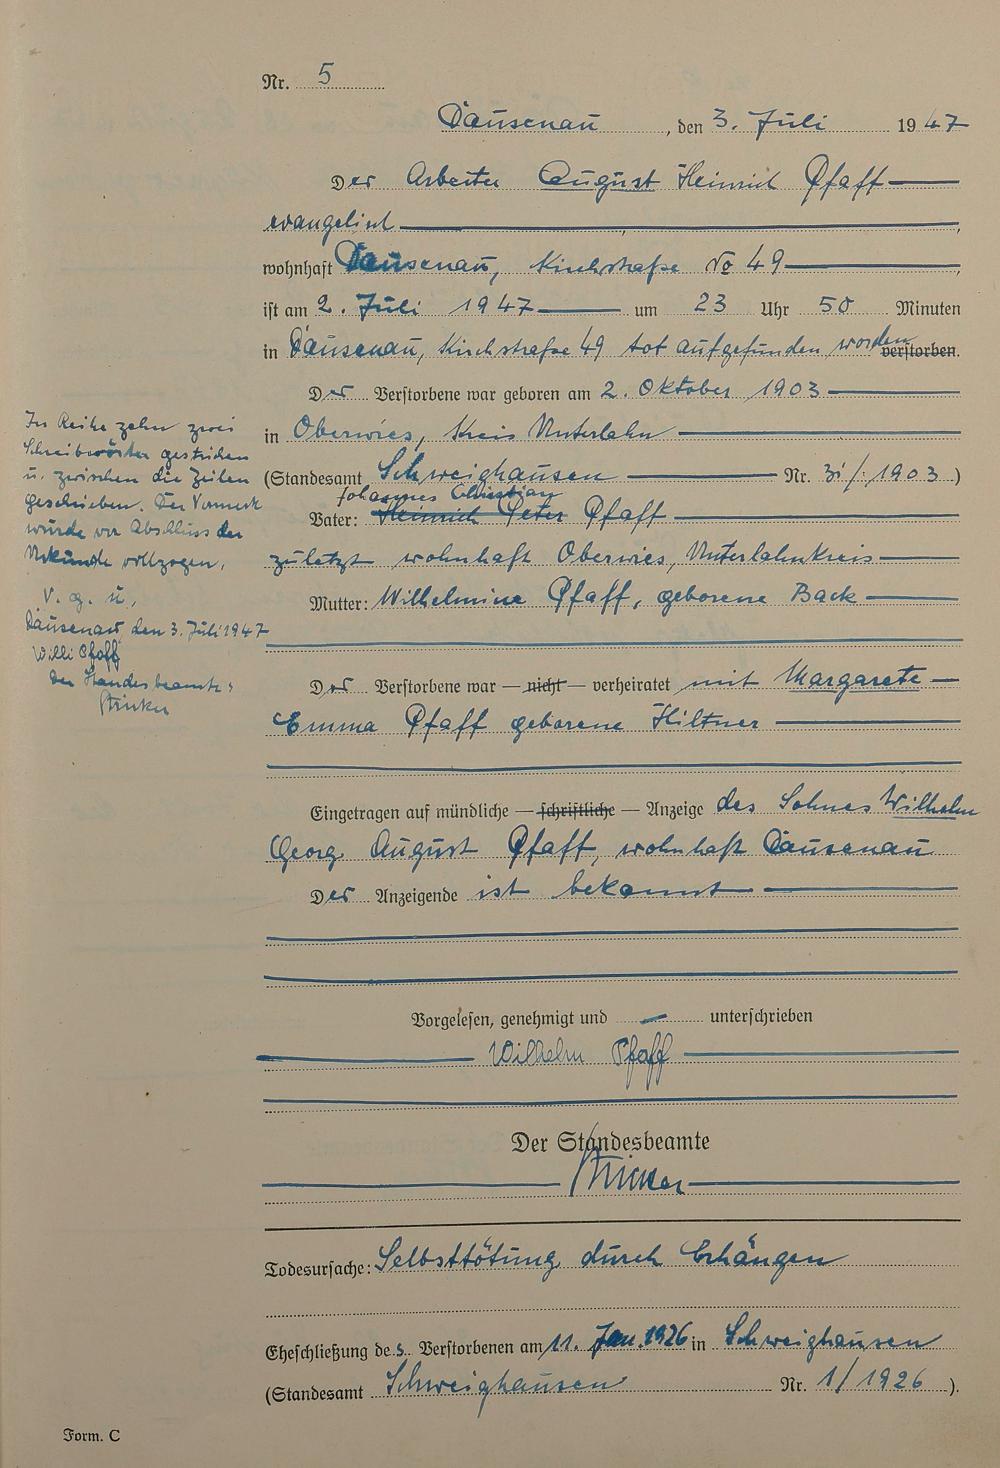 Nr. 5
Dausenau, den 3. Juli 1947
Der Arbeiter August Heinrich Pfaff
evangelisch
wohnhaft Dausenau, Kirchstraße No 49
ist am 2. Juli 1947 um 23 Uhr 50 Minuten
in Dausenau, Kirchstraße 49 tot aufgefunden worden verstorben.
Der Verstorbene war geboren am 2. Oktober 1903
in Oberwies, Kreis Unterlahn
(Standesamt Schweighausen Nr. 31/1903)
Johannes Christian
Vater: Heinrich Peter Pfaff
zuletzt wohnhaft Oberwies, Unterlahnkreis
Mutter: Wilhelmine Pfaff, geborene Back
Der Verstorbene war — nicht — verheiratet mit Margarete
Emma Pfaff geborene Hiltner
Eingetragen auf mündliche — schriftliche — Anzeige des Sohnes Wilhelm
Georg August Pfaff, wohnhaft Dausenau
Der Anzeigende ist bekannt
Vorgelesen, genehmigt und unterschrieben
Wilhelm Pfaff
Der Standesbeamte
Todesursache: Selbsttötung durch Erhängen
Eheschließung des Verstorbenen am 11. Jan. 1926 in Schweighausen
(Standesamt Schweighausen Nr. 1/1926).
In Reihe zehn zwei
Schreibwörter gestrichen
u. zwischen die Zeilen
geschrieben. Der Vermerk
wurde vor Abschluss der
Urkunde vollzogen.
V. g. u.
Dausenau, den 3. Juli 1947
Willi Pfaff
Der Standesbeamte:
Form. C